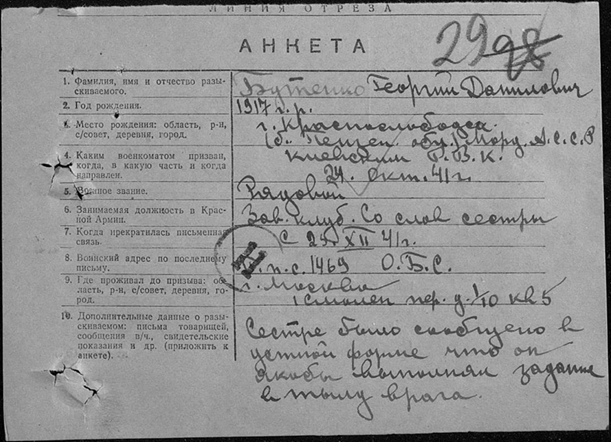 ЛИНИЯ ОТРЕЗА
АНКЕТА
29 98
1. Фамилия, имя и отчество разы-
скиваемого.
Бутенко Георгий Данилович
2. Год рождения.
1917 г.р.
3. Место рождения: область, р-н,
с/совет, деревня, город.
г. Краснослободск
(б. Пензен. обл.) Морд. А.С.С.Р
4. Каким военкоматом призван,
когда, в какую часть и когда
направлен.
Киевским Р.В.К.
24. Окт. 41 г.
5. Военное звание.
Рядовой
6. Занимаемая должность в Крас-
ной Армии.
Зав. клуб. Со слов сестры
7. Когда прекратилась письменная
связь.
С 25. XII 41 г.
8. Воинский адрес по последнему
письму.
п.п.с. 1469 О.Б.С.
9. Где проживал до призыва: об-
ласть, р-н, с/совет, деревня, го-
род.
г. Москва
1 Смолен пер. д. 1/10 кв 5
10. Дополнительные данные о разы-
скиваемом: письма товарищей,
сообщения в/ч., свидетельские
показания и др. (приложить к
анкете).
Сестре было сообщено в
устной форме что он
якобы выполнял задание
в тылу врага.